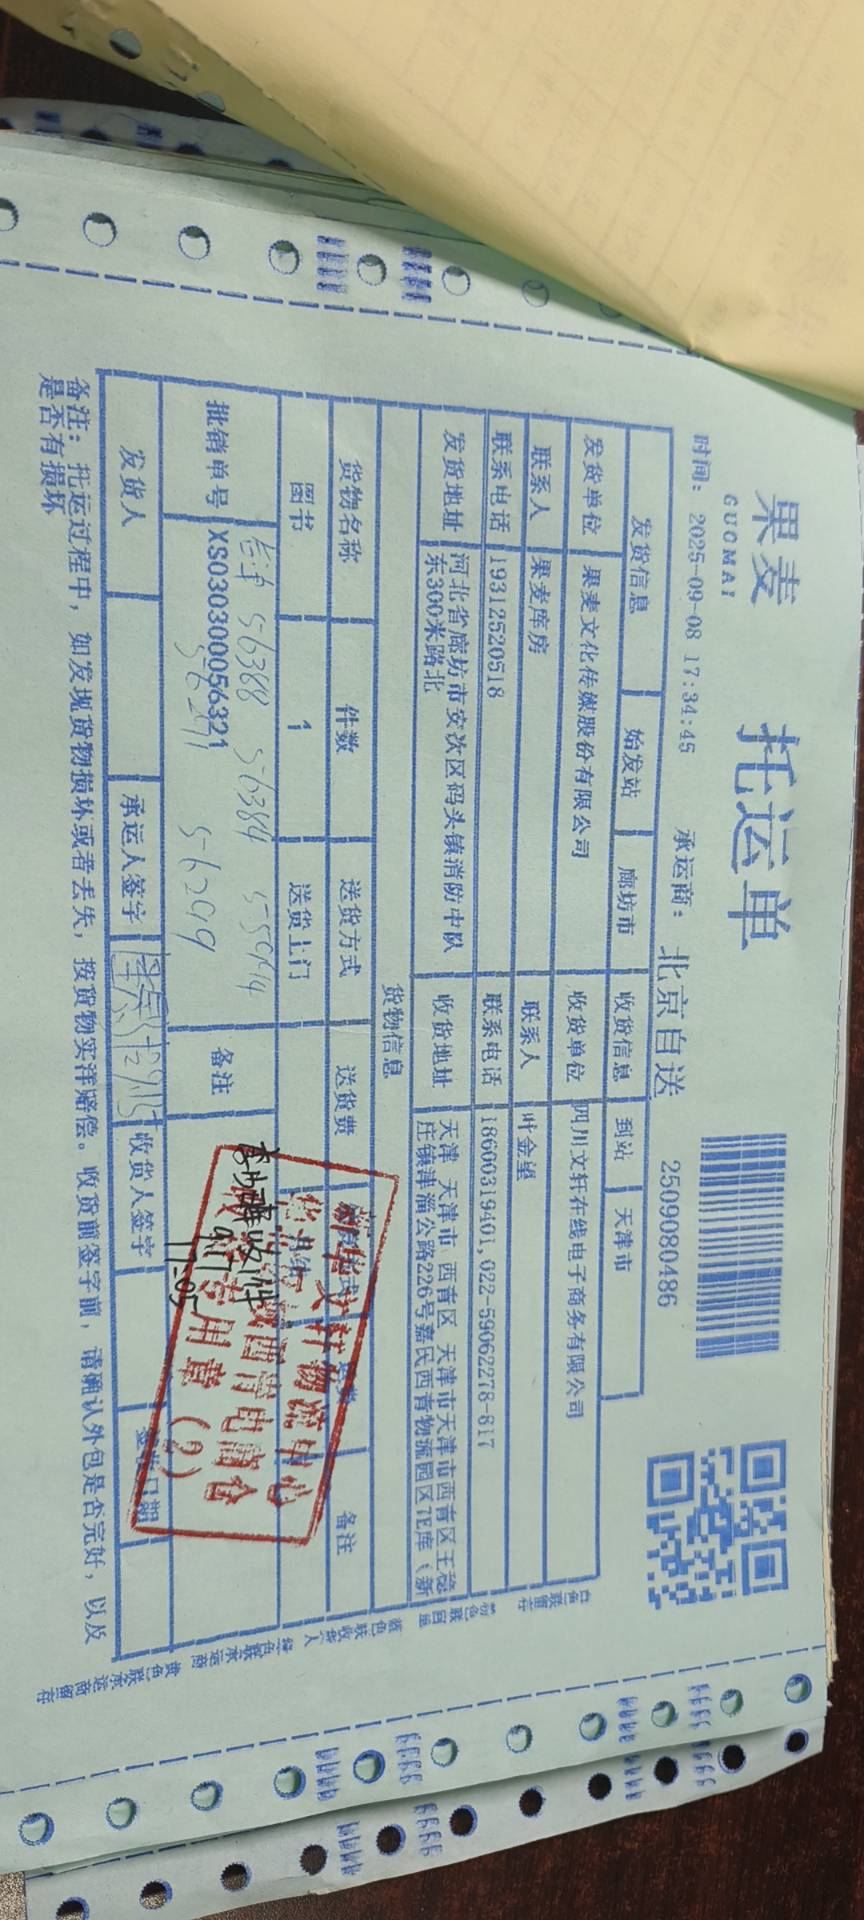 果麦
GUOMAI
托运单
时间: 2025-09-08 17:34:45
承运商: 北京自送
2509080486
发货信息 始发站 廊坊市 收货信息 到站 天津市
发货单位 果麦文化传媒股份有限公司 收货单位 四川文轩在线电子商务有限公司
联系人 果麦库房 联系人 叶金望
联系电话 19312520518 联系电话 18600319401,022-59062278-817
发货地址 河北省廊坊市安次区码头镇消防中队
东300米路北
收货地址 天津 天津市 西青区 天津市天津市西青区王稳
庄镇津淄公路226号嘉民西青物流园区
货物信息
货物名称 件数 送货方式 送货费 备注
图书 1 送货上门
S-6388 S-6384
批销单号 XS030300056321 备注
S-6299
收件
9.17
17:05
物流中心
西青电商仓
用章
(2)
发货人 承运人签字 收货人签字 签收日期
备注: 托运过程中, 如发现货物损坏或者丢失, 按货物实洋赔偿。收货前签字前, 请确认外包是否完好, 以及
是否有损坏
白色联留存
粉色联回单
蓝色联收货人
绿色联承运商
黄色联承运商留存